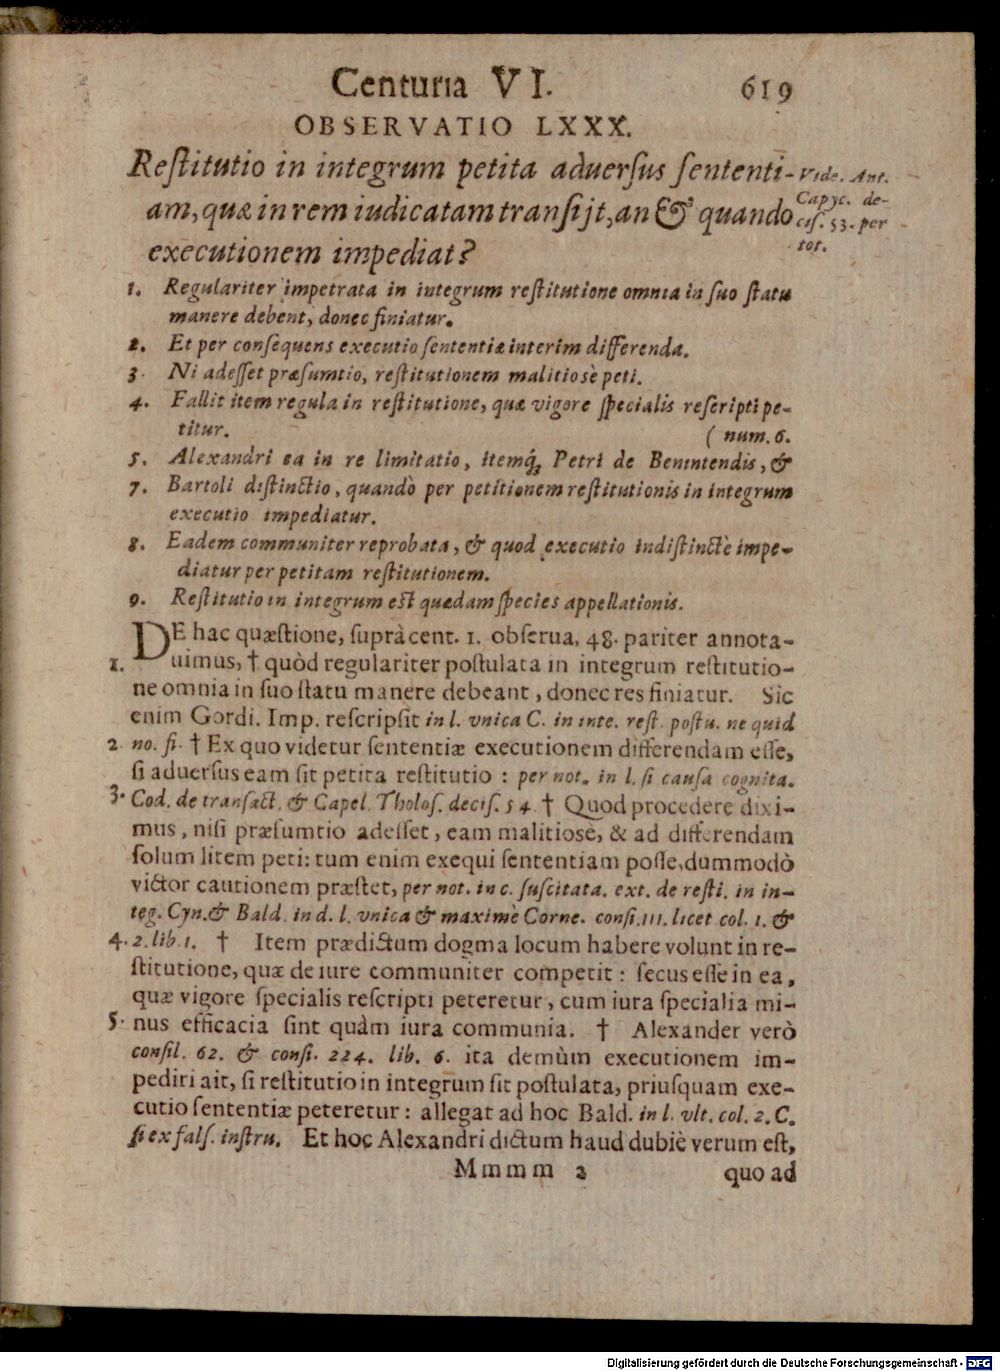 Centuria VI. 619
OBSERVATIO LXXX.
Reſtitutio in integrum petita aduerſus ſententi-
am, quæ in rem iudicatam tranſijt, an & quando
executionem impediat?
Vide. Ant.
Capyc. de-
ciſ. 53. per
tot.
1. Regulariter impetrata in integrum reſtitutione omnia in ſuo ſtatu
manere debent, donec finiatur.
2. Et per conſequens executio ſententiæ interim differenda.
3. Ni adeſſet præſumtio, reſtitutionem malitiosè peti.
4. Fallit item regula in reſtitutione, quæ vigore ſpecialis reſcripti pe-
titur. ( num. 6.
5. Alexandri ea in re limitatio, itemq́; Petri de Benintendis, &
7. Bartoli diſtinctio, quandò per petitionem reſtitutionis in integrum
executio impediatur.
8. Eadem communiter reprobata, & quod executio indiſtinctè impe-
diatur per petitam reſtitutionem.
9. Reſtitutio in integrum eſt quædam ſpecies appellationis.
DE hac quæſtione, ſuprà cent. 1. obſerua, 48. pariter annota-
1. uimus, † quòd regulariter poſtulata in integrum reſtitutio-
ne omnia in ſuo ſtatu manere debeant, donec res finiatur. Sic
enim Gordi. Imp. reſcripſit in l. vnica C. in inte. reſt. poſtu. ne quid
2. no. fi. † Ex quo videtur ſententiæ executionem differendam eſſe,
ſi aduerſus eam ſit petita reſtitutio : per not. in l. ſi cauſa cognita.
3. Cod. de tranſact. & Capel. Tholoſ. deciſ. 54. † Quod procedere dixi-
mus, niſi præſumtio adeſſet, eam malitiosè, & ad differendam
ſolum litem peti: tum enim exequi ſententiam poſſe, dummodò
victor cautionem præſtet, per not. in c. ſuſcitata. ext. de reſti. in in-
teg. Cyn. & Bald. in d. l. vnica & maximè Corne. conſi. 111. licet col. 1. &
4. 2. lib. 1. † Item prædictum dogma locum habere volunt in re-
ſtitutione, quæ de iure communiter competit : ſecus eſſe in ea,
quæ vigore ſpecialis reſcripti peteretur, cum iura ſpecialia mi-
5. nus efficacia ſint quàm iura communia. † Alexander verò
conſil. 62. & conſi. 224. lib. 6. ita demùm executionem im-
pediri ait, ſi reſtitutio in integrum ſit poſtulata, priuſquam exe-
cutio ſententiæ peteretur : allegat ad hoc Bald. in l. vlt. col. 2. C.
ſi ex falſ. inſtru. Et hoc Alexandri dictum haud dubiè verum eſt,
Mmmm 2 quo ad
Digitalisierung gefördert durch die Deutsche Forschungsgemeinschaft - DFG